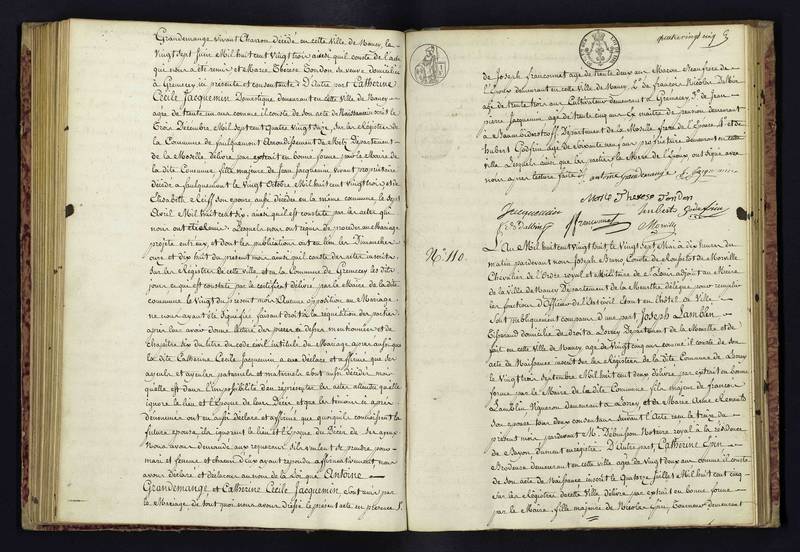 Grandemange vivant Charron décédé en cette Ville de Nancy, le
Vingt Sept Juin Mil huit cent Vingt trois ainsi qu'il conste de l'acte
qui nous a été remis et Marie Thérèse Tondon sa veuve domiciliée
à Gremecey ici présente et consentante D'Autre part Catherine
Cécile Jacquemin Domestique demeurant en cette Ville de Nancy
agée de trente un ans comme il conste de son acte de Naissance inscrit le
Trois Décembre Mil Sept cent Quatre Vingt Seize, sur les Registres de
la Commune de faulquemont Arrondissement de Metz Département
de la Moselle, délivré par extrait en bonne forme par le Maire de
la dite Commune, fille majeure de Jean Jacquemin Vivant propriétaire
décédé à faulquemont le Vingt Octobre Mil huit cent Vingt trois, et de
Elisabeth Reiff son épouse aussi décédée en la même commune, le Sept
Avril Mil huit cent six, ainsi qu'il est constaté par les actes qui
nous ont été remis Lesquels nous ont requis de procéder au Mariage
projeté entr'eux, et dont les publications ont eu lieu les Dimanches
onze et dix huit du présent mois ainsi qu'il conste des actes inscrits
sur les Registres de cette Ville, et en la Commune de Gremecey les dits
jours ce qui est constaté par le certificat délivré par le Maire de la dite
commune le Vingt du présent mois Aucune opposition au Mariage
ne nous ayant été signifiée, faisant droit à la réquisition des parties
après leur avoir donné lecture des pièces ci dessus mentionnées et du
chapitre six du titre du code civil intitulé du Mariage après aussi que
la dite Catherine Cécile Jacquemin a eu déclaré et affirmé que ses
ayeuls et ayeules paternels et maternels sont aussi décédés mais
qu'elle est dans l'impossibilité d'en représenter les actes attendu qu'elle
ignore le lieu et l'époque de leur décès et que les témoins ci après
dénommés ont eu aussi déclaré et affirmé que quoiqu'ils connaissent la
future épouse, ils ignorent le lieu et l'époque du Décès de ses ayeux
Nous avons demandé aux requérans s'ils veulent se prendre pour
mari et femme et chacun d'eux ayant répondu affirmativement nous
avons déclaré et déclarons au nom de la Loi que Antoine
Grandemange, et Catherine Cécile Jacquemin, sont unis par
le Mariage, de tout quoi nous avons dressé le présent acte en présence 1.
quatre vingt cinq
de Joseph franconnet agé de trente deux ans Macon Beau frere de
l'Epoux demeurant en cette Ville de Nancy, 2. de francois Nicolas
agé de trente trois ans Cultivateur demeurant à Gremecey 3. de Jean
pierre Jacquemin agé de trente cinq ans Ex maitre de pension demeurant
Département de la Moselle frere de l'Epouse 4. et de
hubert Godfrin agé de soixante neuf ans propriétaire demeurant en cette
Ville Lesquels ainsi que les parties la Mere de l'Epoux ont signé avec
nous après lecture faite antoine grandemange C. Jacquemin
Marie Thérèse Tondon
Jacquemin hubert Godefrin
franconnet Morville
N.º 110.
L'An Mil huit cent Vingt huit le Vingt Sept Mai à Dix heures du
matin pardevant nous Joseph Bruno, Comte de Morville
Chevalier de l'Ordre royal et Militaire de St Louis adjoint au Maire
de la Ville de Nancy Département de la Meurthe délégué pour remplir
les fonctions d'Officier de l'Etat civil Etant en l'hôtel de Ville
Sont publiquement comparus d'une part Joseph Lamblin
Tisserand domicilié de droit à Lorrey Département de la Meurthe et de
fait en cette Ville de Nancy, agé de Vingt cinq ans comme il conste de son
acte de Naissance inscrit sur les Registres de la dite Commune de Lorrey
le Vingt trois Septembre Mil huit cent deux délivré par extrait en bonne
forme par le Maire de la dite Commune fils majeur de francois
Lamblin Vigneron demeurant à Lorrey et de Marie Anne
son épouse tous deux consentans suivant l'Acte reçu le treize du
présent mois pardevant Me. Notaire royal à la résidence
de Bayon dument enregistré D'Autre part, Catherine Gin
Brodeuse demeurant en cette Ville agée de Vingt deux ans comme il conste
de son acte de Naissance inscrit le Quatorze Juillet Mil huit cent cinq
sur les Registres de cette Ville délivré par extrait en bonne forme
par le Maire, fille majeure de Nicolas Gin, Tourneur demeurant